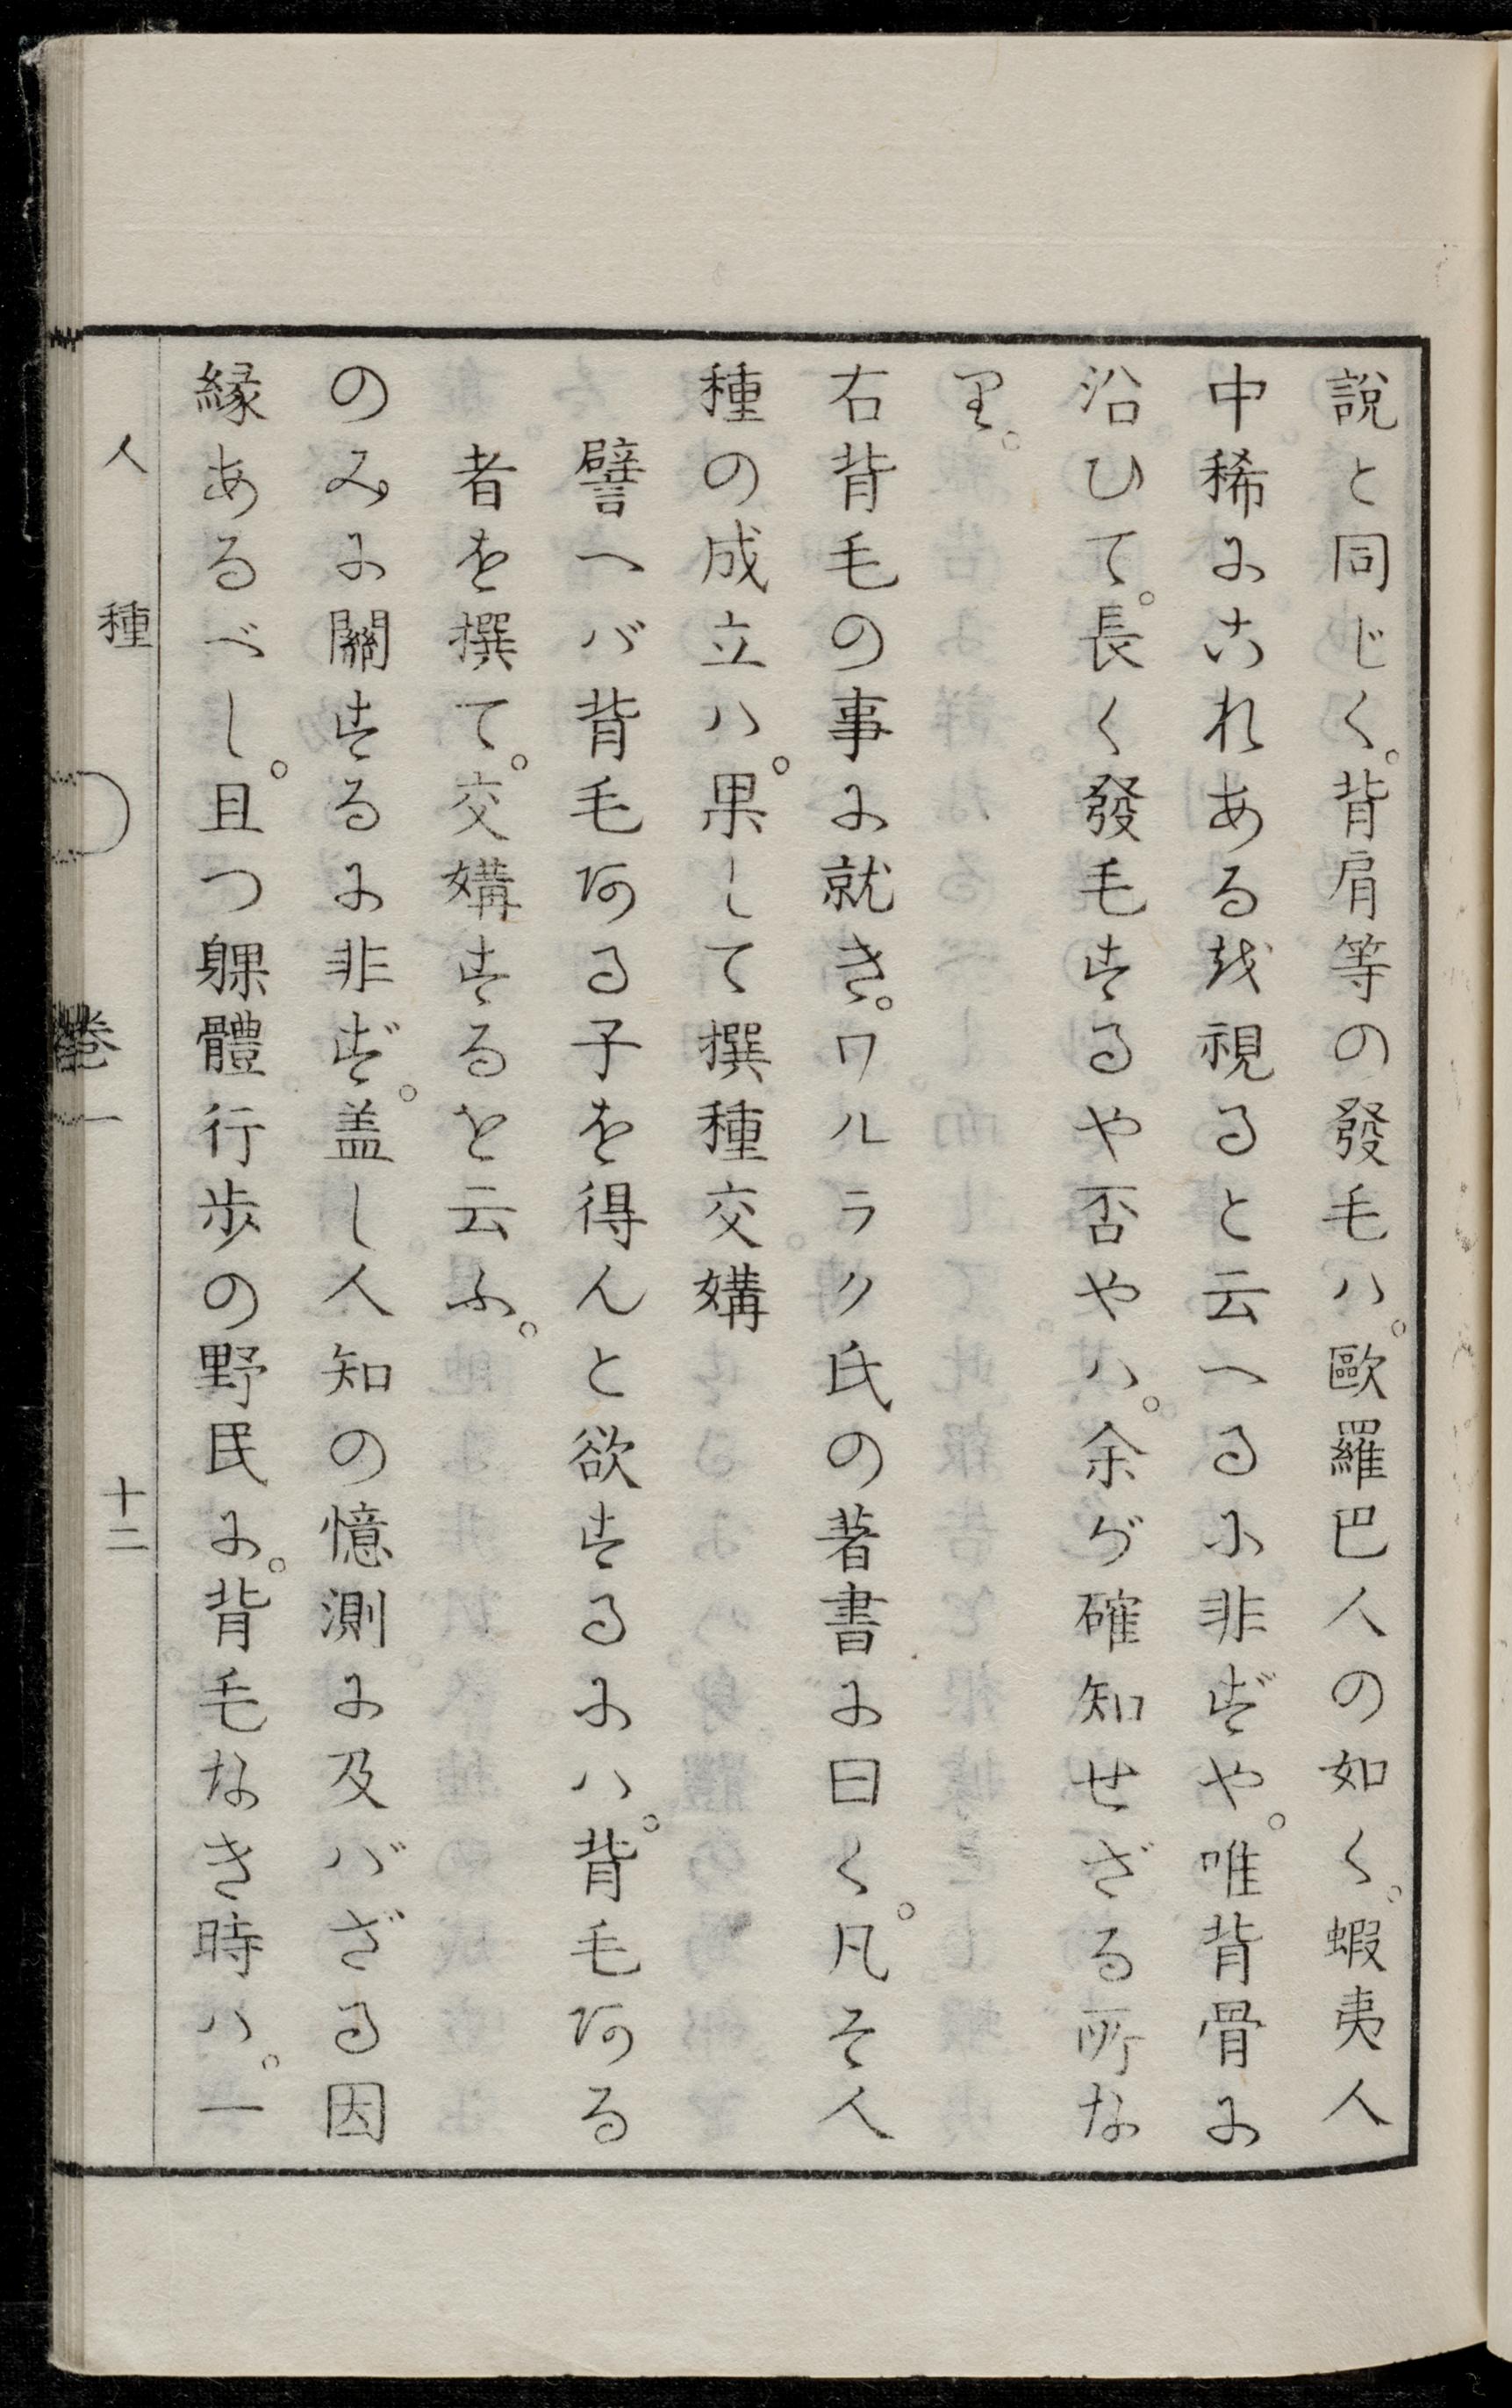 說と同じく。背肩等の發毛ハ。歐羅巴人の如く。蝦夷人
中稀にこれあるを視ると云へるに非ずや。唯背骨に
沿ひて。長く發毛するや否やハ。余が確知せざる所な
り。
右背毛の事に就き。ワルラク氏の著書に曰く。凡そ人
種の成立ハ。果して撰種交媾
譬へバ背毛ある子を得んと欲するにハ。背毛ある
者を撰て。交媾するを云ふ。
のみに關するに非ず。盖し人知の憶測に及バざる因
縁あるべし。且つ躶體行歩の野民に。背毛なき時ハ。一
人種 卷一 十二